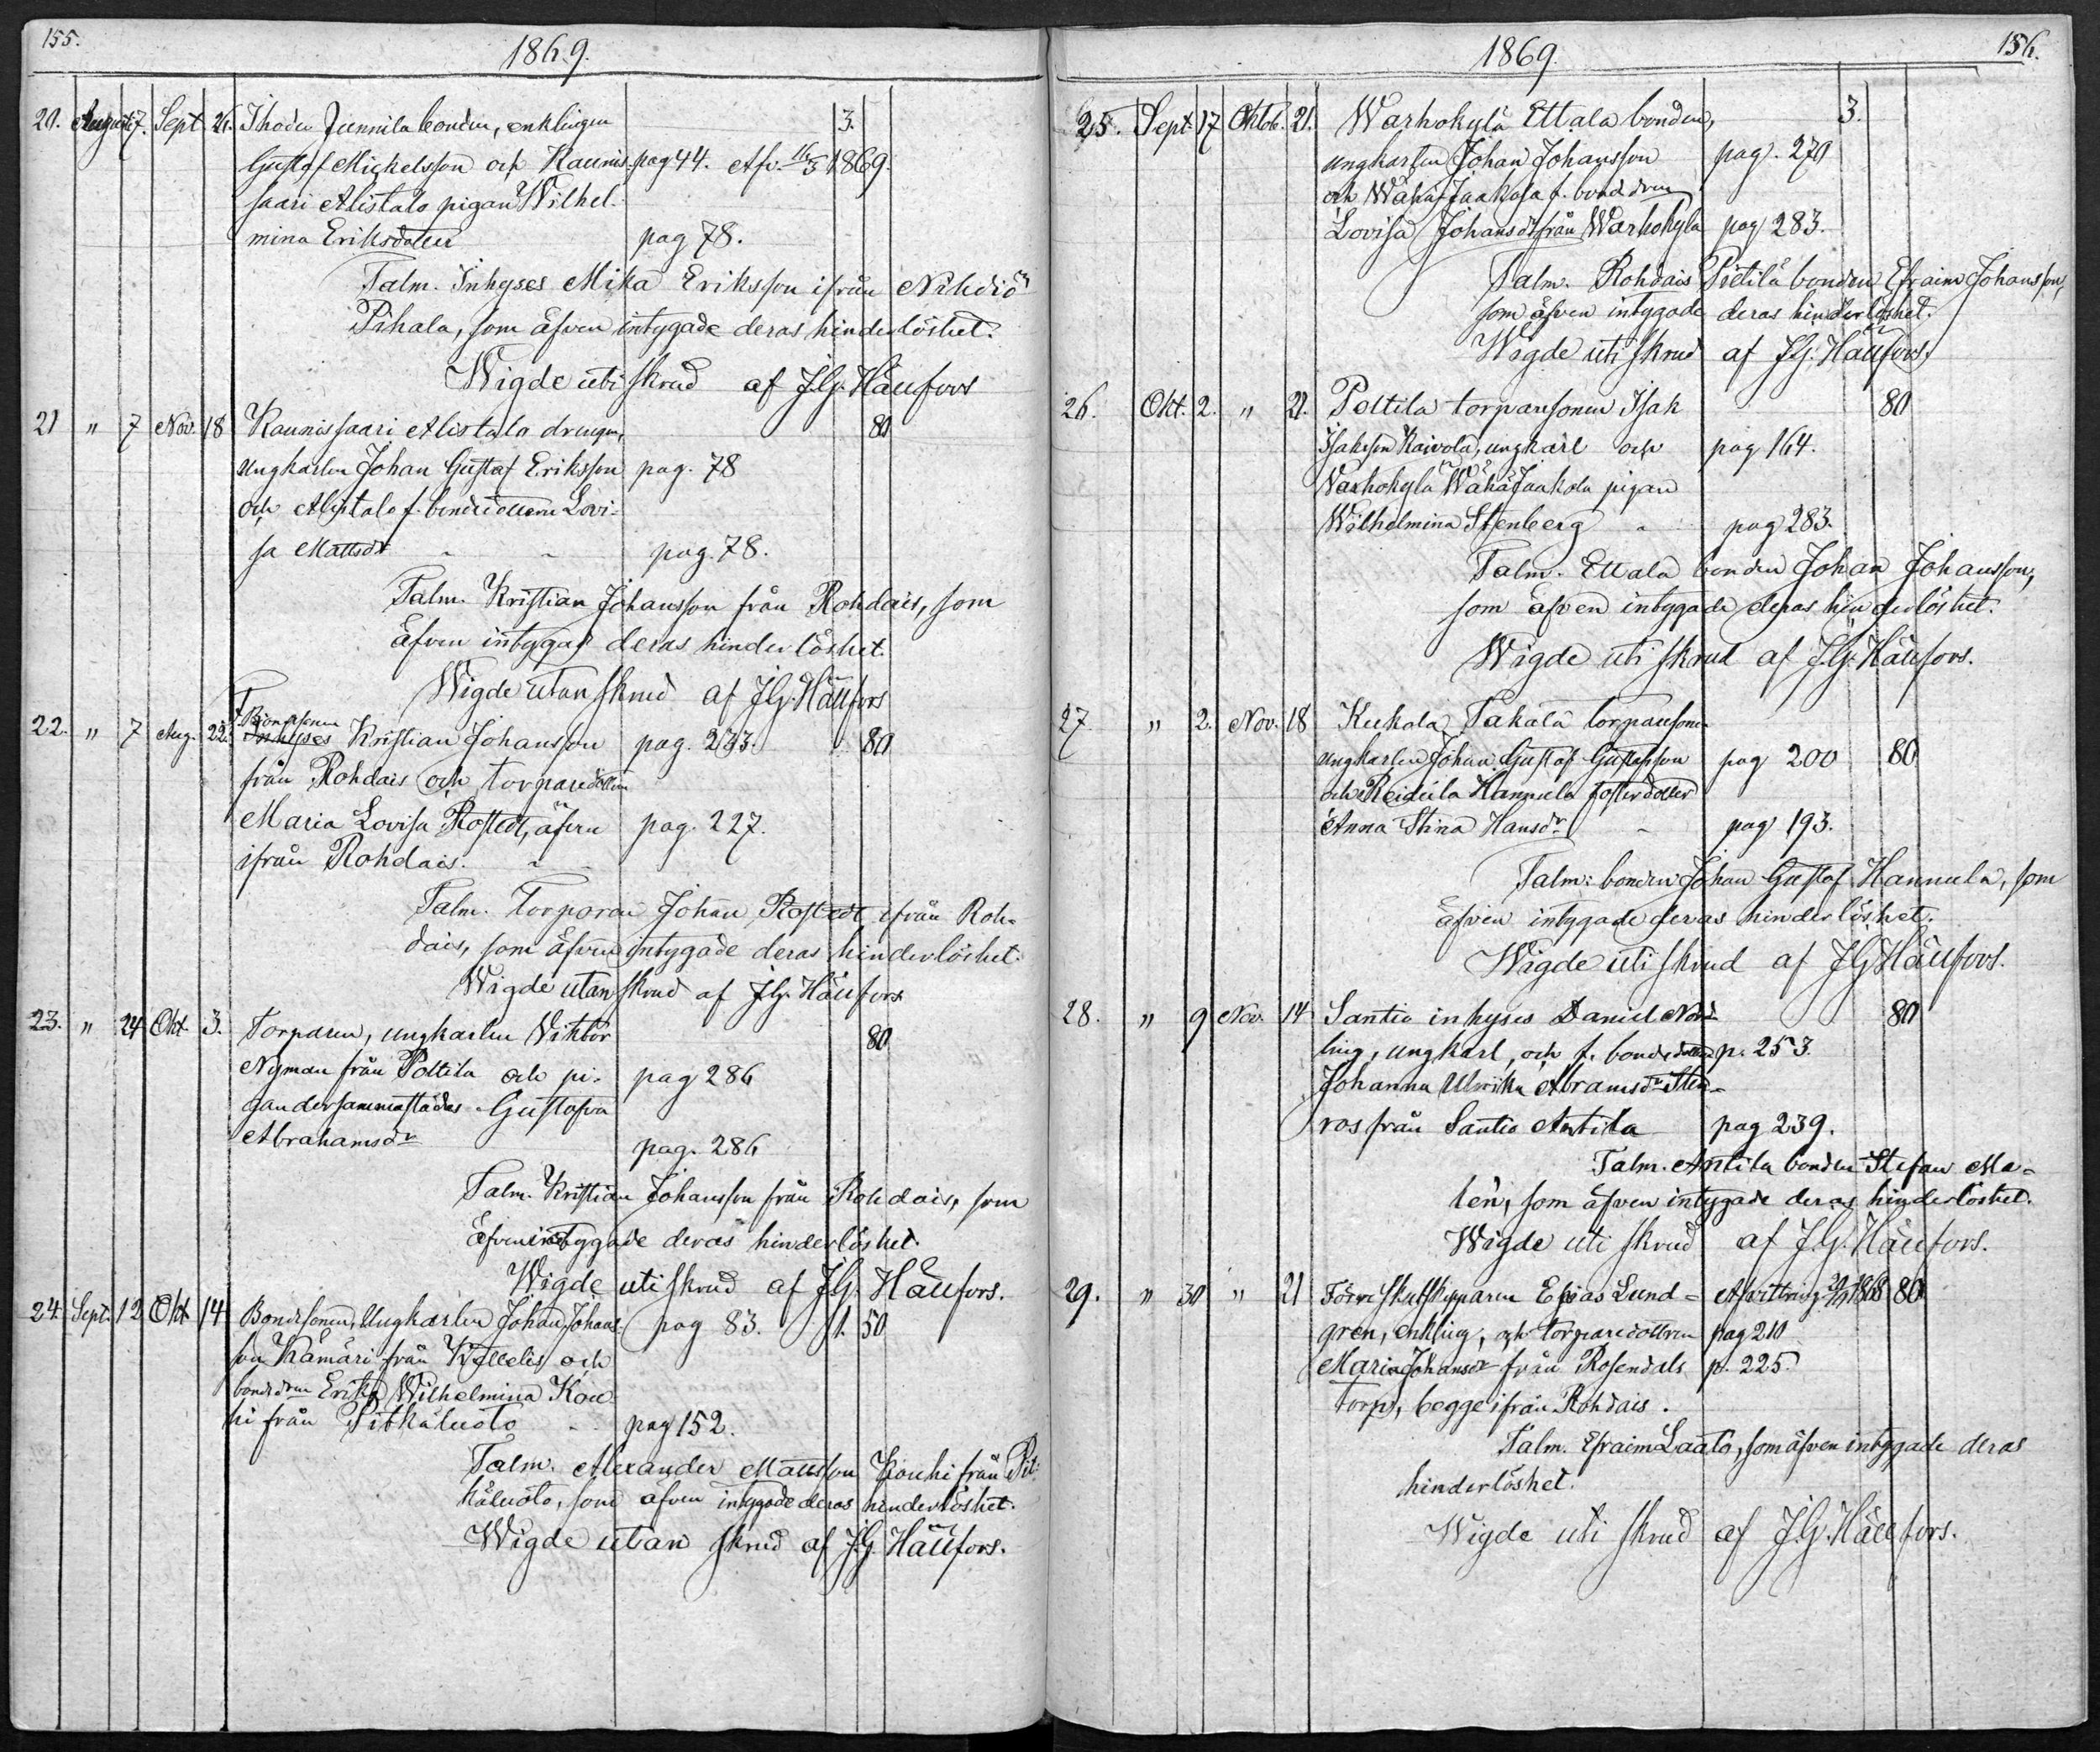 155.
1869.
20. Augusti 7. Sept 26. Ihodu Junnila bonden, enklingen 3.
Gustaf Mickelsson och Kaunis- pag 44. Afv. 16/3 1869.
saari Alistalo pigan Wilhel-
mina Eriksdotter pag 78.
Talm. Inhyses Mika Eriksson ifrån Nihdiö
Pihala, som äfven intygade deras hinderlöshet.
Wigde uti skrud af J.G. Hällfors
21 " 7 Nov. 18 Kaunissaari Alistalo drengen, 80
Ungkarlen Johan Gustaf Eriksson pag. 78
och Alistalo f. bondedottern Lovi-
sa Mattsdr " " pag. 78.
Talm. Kristian Johansson från Rohdais, som
äfven intygat deras hinderlöshet.
Wigde utan skrud af J.G. Hällfors
22. " 7 Aug. 22. F. Bondesonen Inhyses Kristian Johansson pag. 233. 80
från Rohdais och torparedottern
Maria Lovisa Rostedt, äfven pag. 227.
ifrån Rohdais. "
Talm. Torparen Johan Rostedt ifrån Roh-
dais, som äfven intygade deras hinderlöshet.
Wigde utan skrud af J.G. Hällfors
23. " 24 Okt 3. Torparen, ungkarlen Viktor 80
Nyman från Polttila och pi- pag 286
gan dersammastädes Gustafva
Abrahamsdr pag. 286
Talm. Kristian Johansson från Rohdais, som
Äfven intygade deras hinderlöshet.
Wigde uti skrud af J.G. Hällfors.
24. Sept. 12 Okt 14 Bondesonen, Ungkarlen Johan Johans- pag 83. 1. 50
son Kämäri från Kellelis och
bondedrn Erika Wilhelmina Kou-
hi från Pitkäluoto " pag 152.
Talm. Alexander Mattsson Kouhi från Pit-
käluoto, som äfven intygade deras hinderlöshet.
Wigde utan skrud af J.G. Hällfors.
1869.
156.
25. Sept. 17 Oktob. 21. Warhokylä Ettala bonden, 3.
ungkarlen Johan Johansson pag. 279
och Wähä Jaakola f. bonddrn
Lovisa Johansdr från Warhokyla pag 283.
Talm. Rohdais Pietilä bonden Efraim Johansson,
som äfven intygade deras hinderlöshet.
Wigde uti skrud af J.G. Hällfors.
26. Okt. 2. " 21. Polttila torparesonen Isak 80
Isaksson Kaivola, ungkarl och pag 164.
Warhokyla Wähä Jaakola pigan
Wilhelmina Stenberg " pag 283.
Talm. Ettala bonden Johan Johansson,
som äfven intygade deras hinderlöshet.
Wigde uti skrud af J.G. Hällfors.
27. " 2. Nov. 18 Kukola Takala torparesonen
ungkarlen Johan Gustaf Gustafsson pag 200 80
och Reidila Hannula fosterdotter
Anna Stina Hansdr " pag 193.
Talm: bonden Johan Gustaf Hannula, som
äfven intygade deras hinderlöshet.
Wigde uti skrud af J.G. Hällfors.
28. " 9 Nov. 14 Santio inhyses Daniel Nord- 80
ling, ungkarl, och f. bondedottern p. 253.
Johanna Ulrika Abramsdr Sten-
ros från Santio Anttila pag 239.
Talm. Anttila bonden Stefan Ma-
lén, som äfven intygade deras hinderlöshet.
Wigde uti skrud af J.G. Hällfors.
29. " 30 " 21 Förre Skutskepparen Esaias Lund- Afvittring 1868 80
gren, enkling, och torparedottren pag 210
Maria Johansdr från Rosendals p. 225.
torp, begge ifrån Rohdais.
Talm. Efraim Laato, som äfven intygade deras
hinderlöshet.
Wigde uti skrud af J.G. Hällfors.